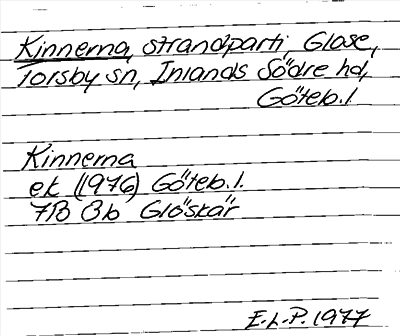 Kinnerna, strandparti, Glose,
Torsby sn, Inlands Södre hd,
Göteb. l.
Kinnerna
ek (1976) Göteb. l.
7B 8b Glöskär
E.L.P. 1977